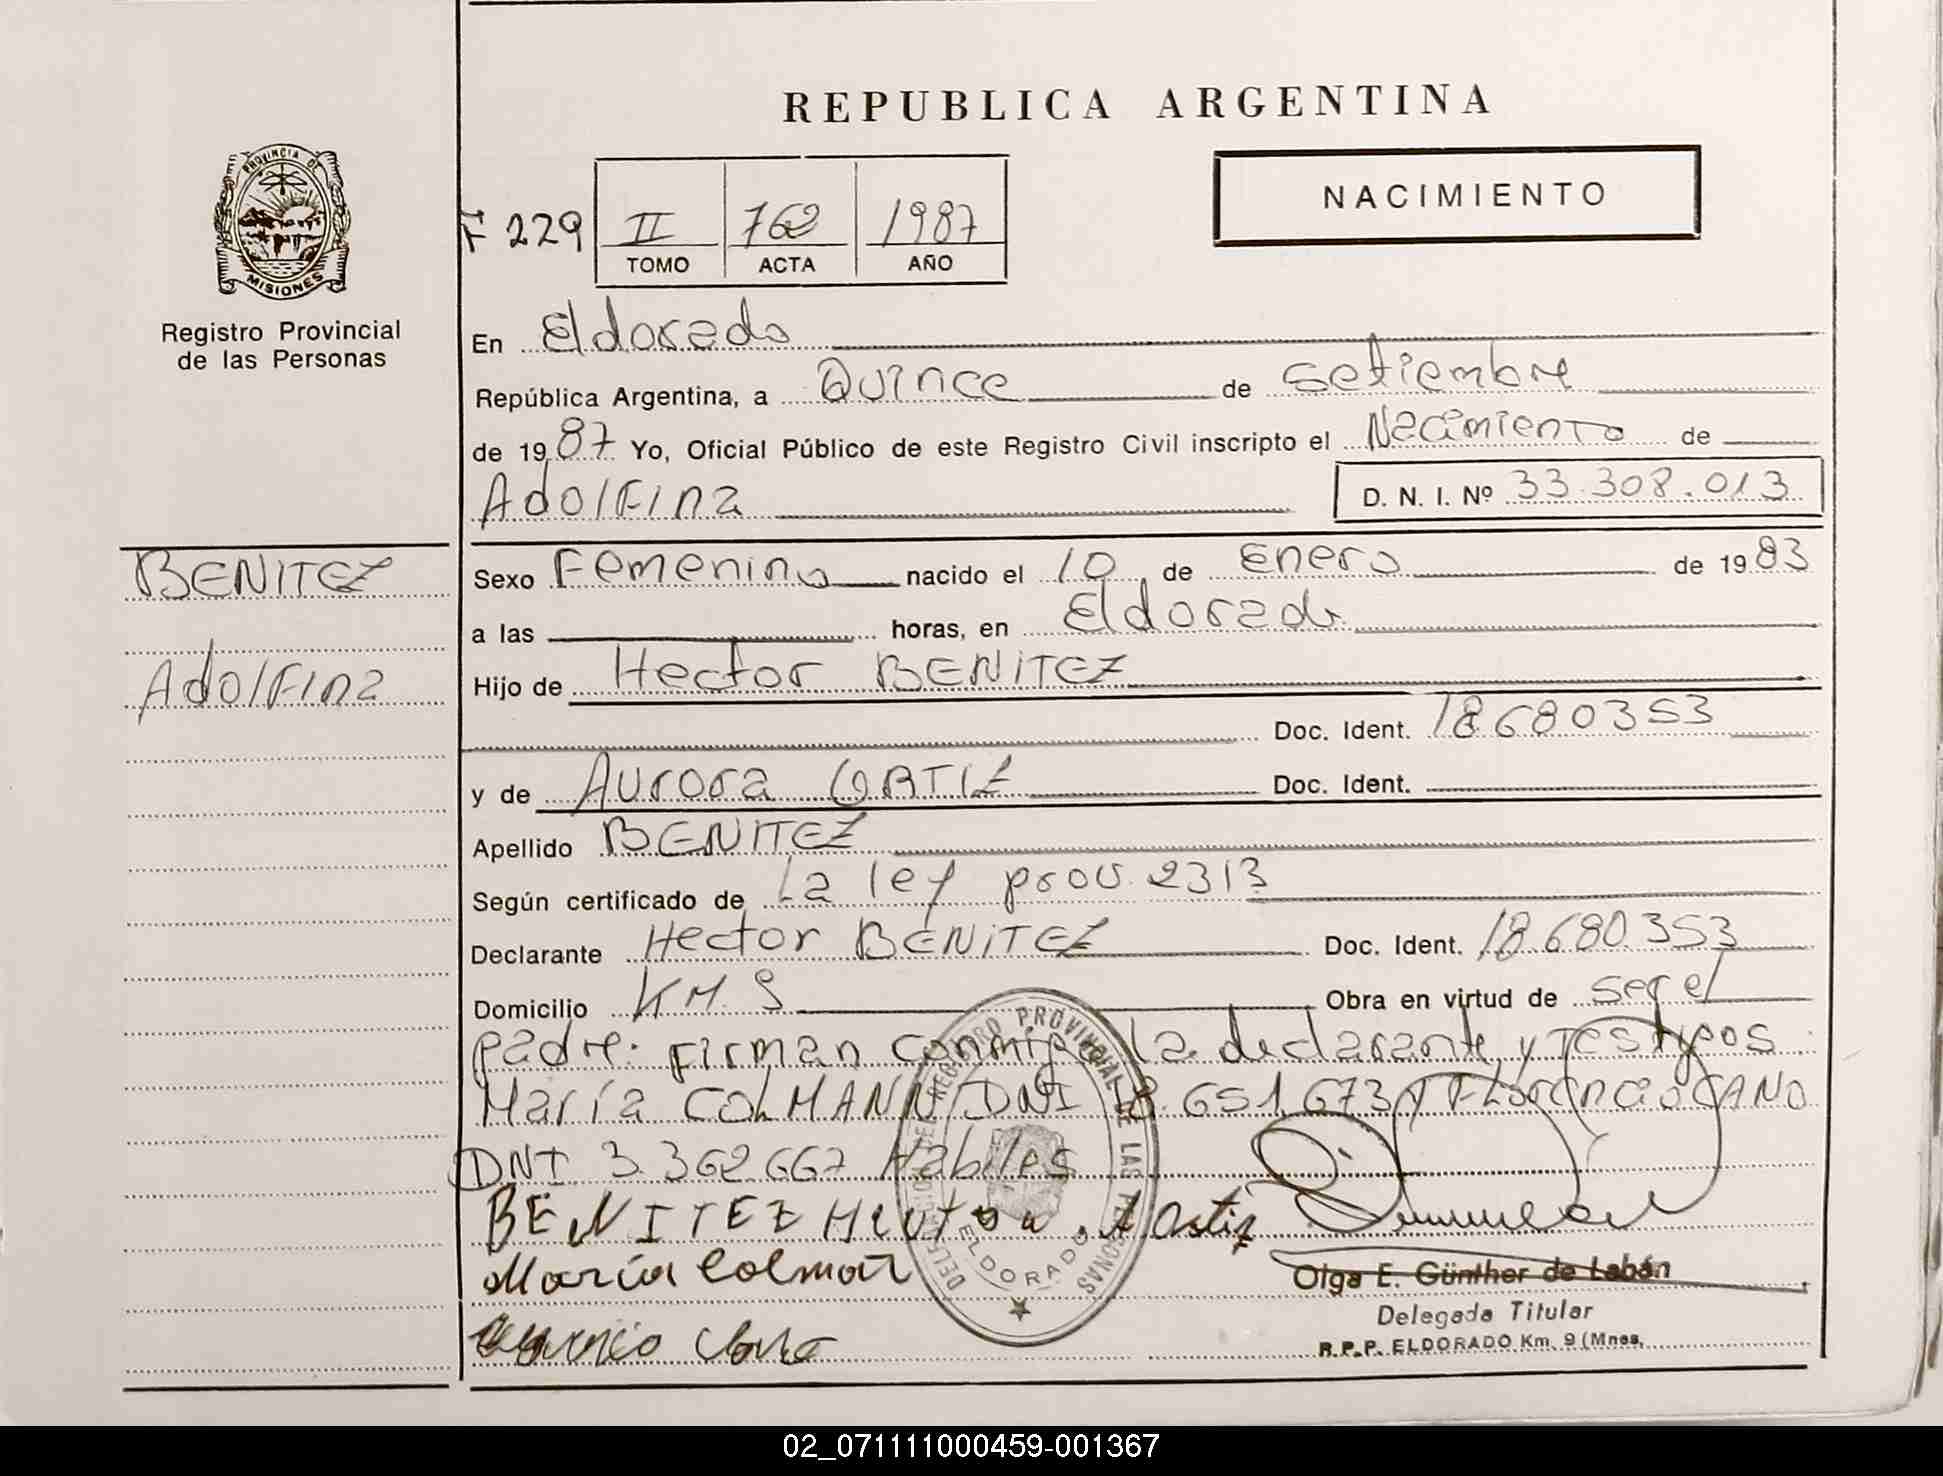 REPUBLICA ARGENTINA
PROVINCIA DE
MISIONES
Registro Provincial
de las Personas
NACIMIENTO
F 229
II 762 1987
TOMO ACTA AÑO
En Eldorado
República Argentina, a Quince de setiembre
de 1987 Yo, Oficial Público de este Registro Civil inscripto el Nacimiento de
Adolfina D. N. I. Nº 33.308.013
BENITEZ
Adolfina
Sexo Femenino nacido el 10 de Enero de 1983
a las horas, en Eldorado
Hijo de Hector BENITEZ
Doc. Ident. 18.680353
y de Aurora ORTIZ Doc. Ident.
Apellido BENITEZ
Según certificado de La ley prov. 2313
Declarante Hector BENITEZ Doc. Ident. 18.680.353
Domicilio KM. 9 Obra en virtud de ser el
padre: Firman conmigo la declarante y Testigos
María COLMANN DNI 18.651.673 y Florencio CANO
DNI 3.362.667 Habiles
BENITEZ Hector A Ortiz
María Colman
DELEGACION DEL REGISTRO PROVINCIAL DE LAS PERSONAS
ELDORADO
Olga E. Günther de Labán
Delegada Titular
R.P.P. ELDORADO Km. 9 (Mnes.
02_071111000459-001367